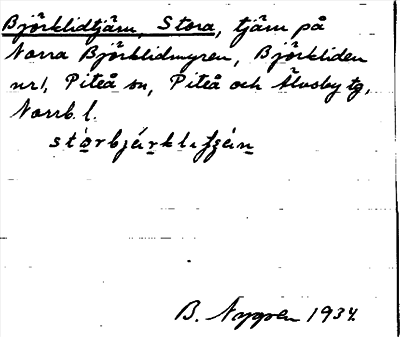 Björklidtjärn, Stora, tjärn på
Norra Björklidmyren, Björkliden
nr 1, Piteå sn, Piteå och Älvsby tg,
Norrb. l.
B. Nygren 1934.